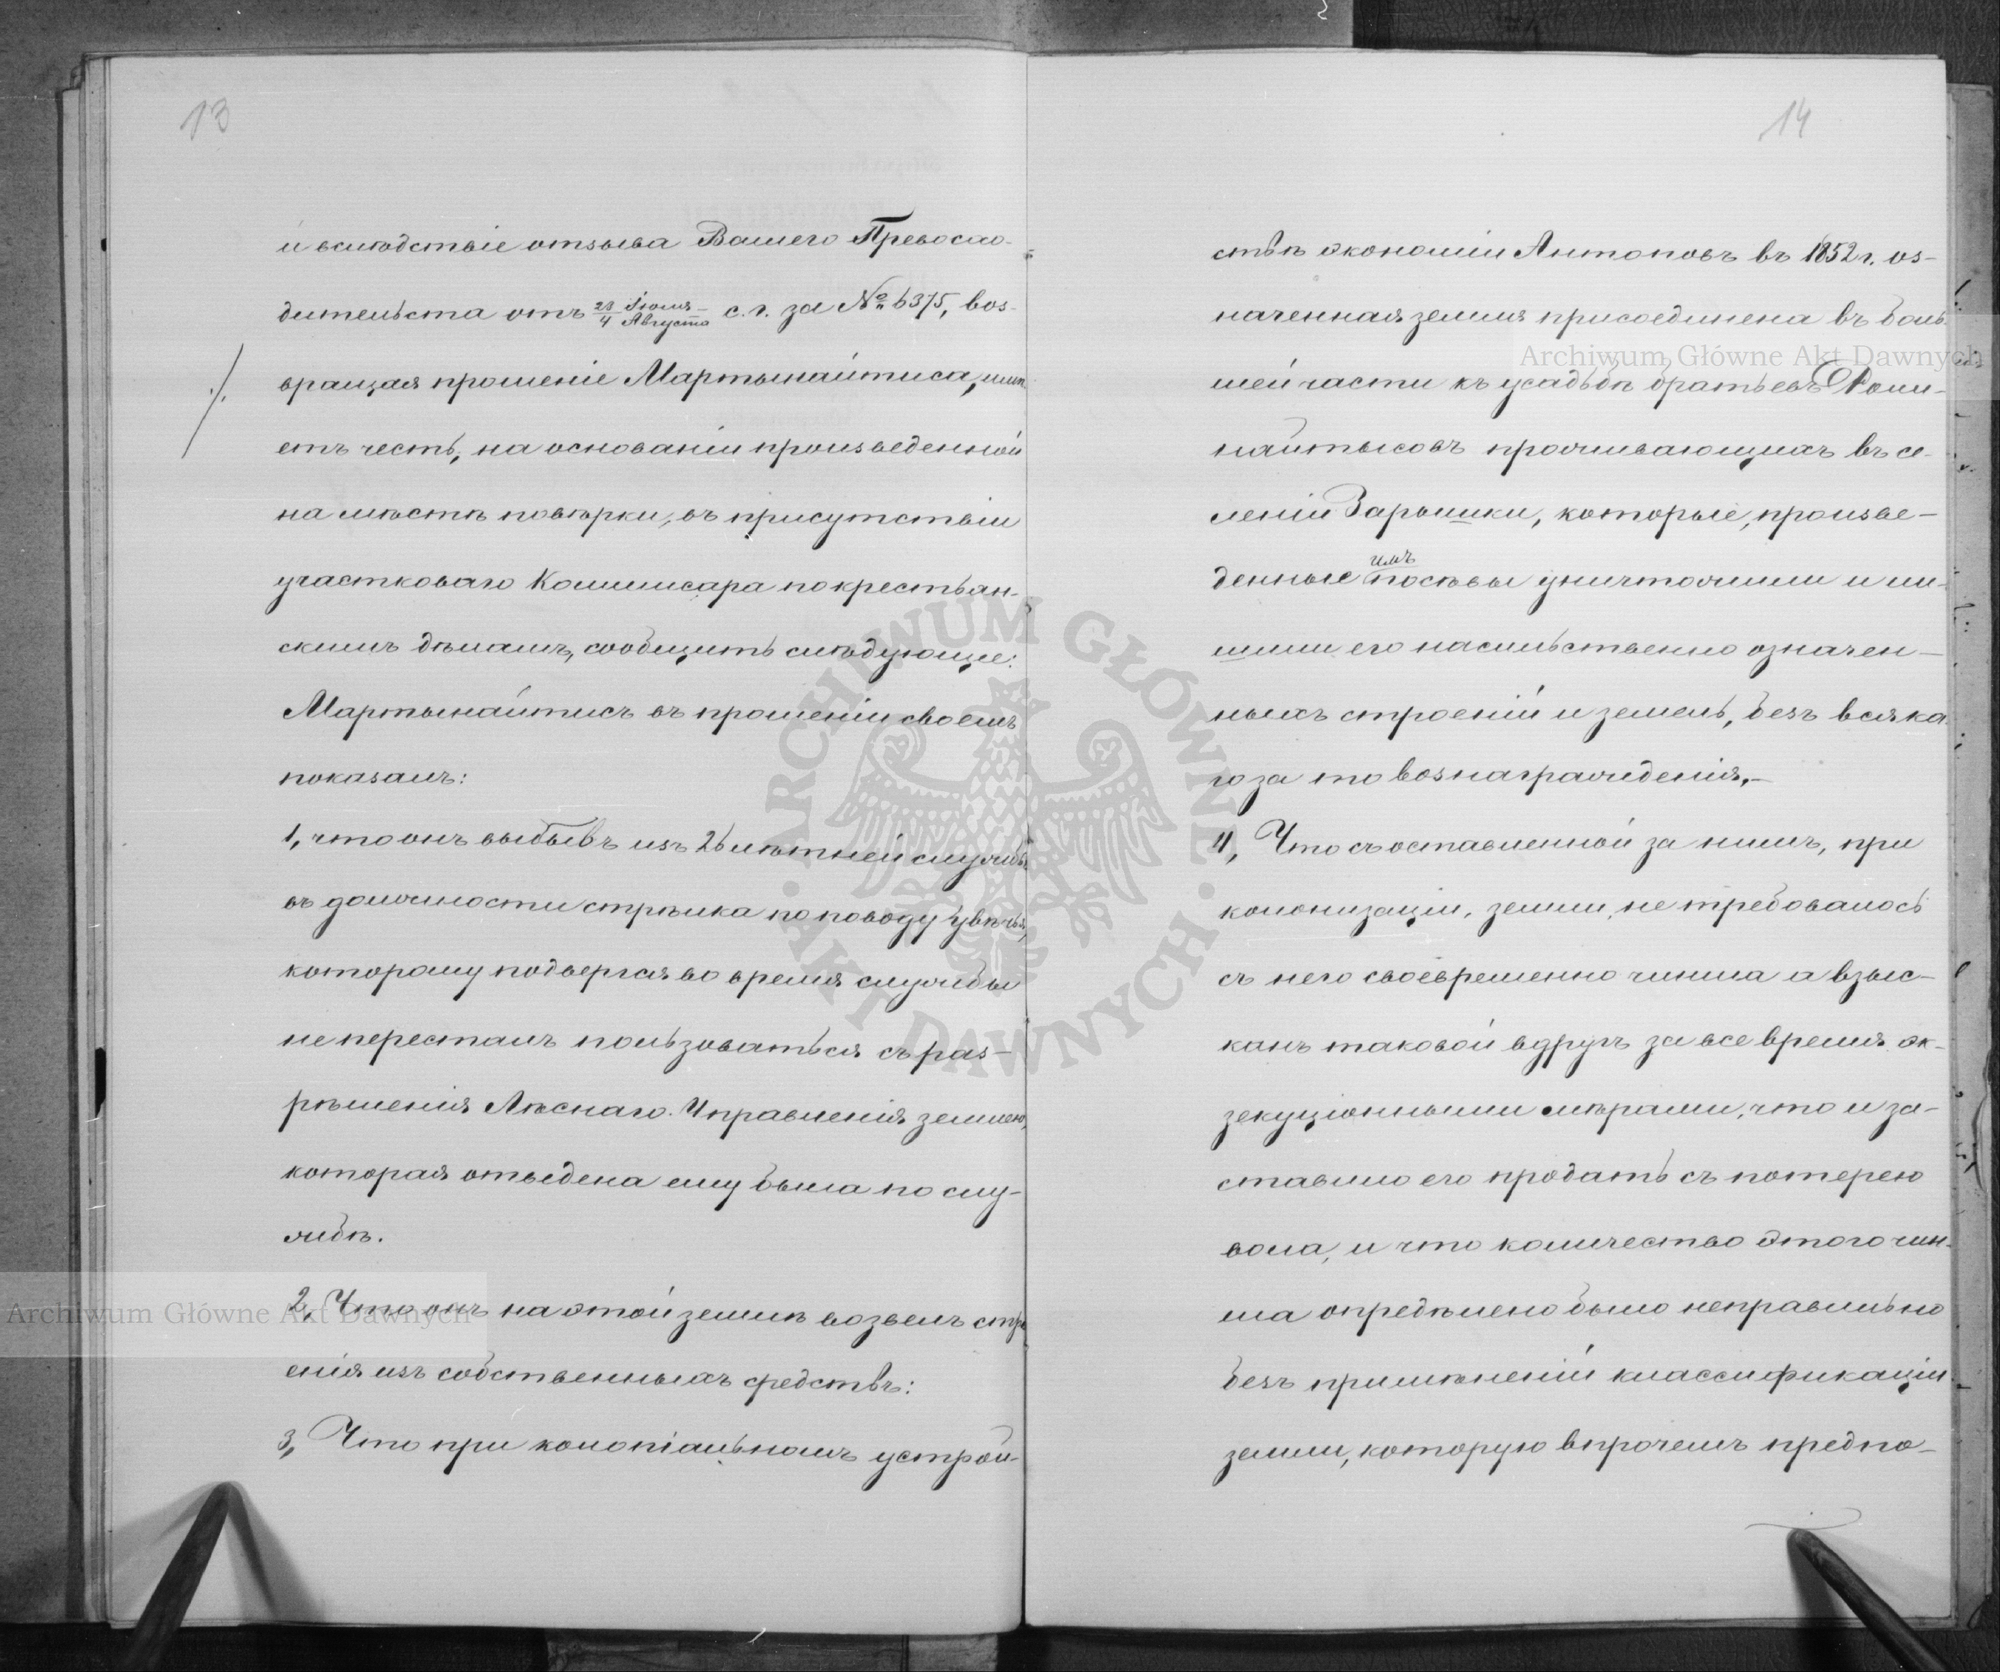 13
и вслѣдствіе отзыва Вашего Превосхо-
дительства отъ 23 Іюля / 4 Августа с. г. за № 6375, воз-
вращая прошеніе Мартынайтиса, имѣ-
етъ честь, на основаніи произведенной
на мѣстѣ повѣрки, въ присутствіи
участковаго Коммисара по крестьян-
скимъ дѣламъ, сообщить слѣдующіе:
Мартынайтисъ въ прошеніи своемъ
показалъ:
1, что онъ выбывъ изъ 26 лѣтней службы
въ должности стрѣлка по поводу увѣчья,
которому подвергся во время службы
не пересталъ пользоваться съ раз-
рѣшенія Лѣснаго Управленія землею,
которая отведена ему была по слу-
жбѣ.
2, Что онъ на этой землѣ возвелъ стро
енія изъ собственныхъ средствъ:
3, Что при колоніальномъ устрой-
14
ствѣ экономіи Антоновъ въ 1852 г. оз-
наченная земля присоединена въ боль-
шей части къ усадьбѣ братьевъ
найтысовъ проживающихъ въ се-
леніи Зарышки, которые, произве-
денные имъ посѣвы уничтожили и ли-
шили его насильственно означен-
ныхъ строеній и земель, безъ всяка
го за то вознагражденія,-
4, Что съ оставленной за нимъ, при
колонизаціи, земли, не требовалось
съ него своевременно чинша а взыс-
канъ таковой вдругъ за все время эк-
зекуціонными мѣрами, что и за-
ставило его продать съ потерею
вола, и что количество этого чин-
ша опредѣлено было неправильно
безъ примѣненій классификаціи
земли, которую впрочемъ предпо-
Archiwum Główne Akt Dawnych
Archiwum Główne Akt Dawnych
ARCHIWUM GŁÓWNE · AKT DAWNYCH ·